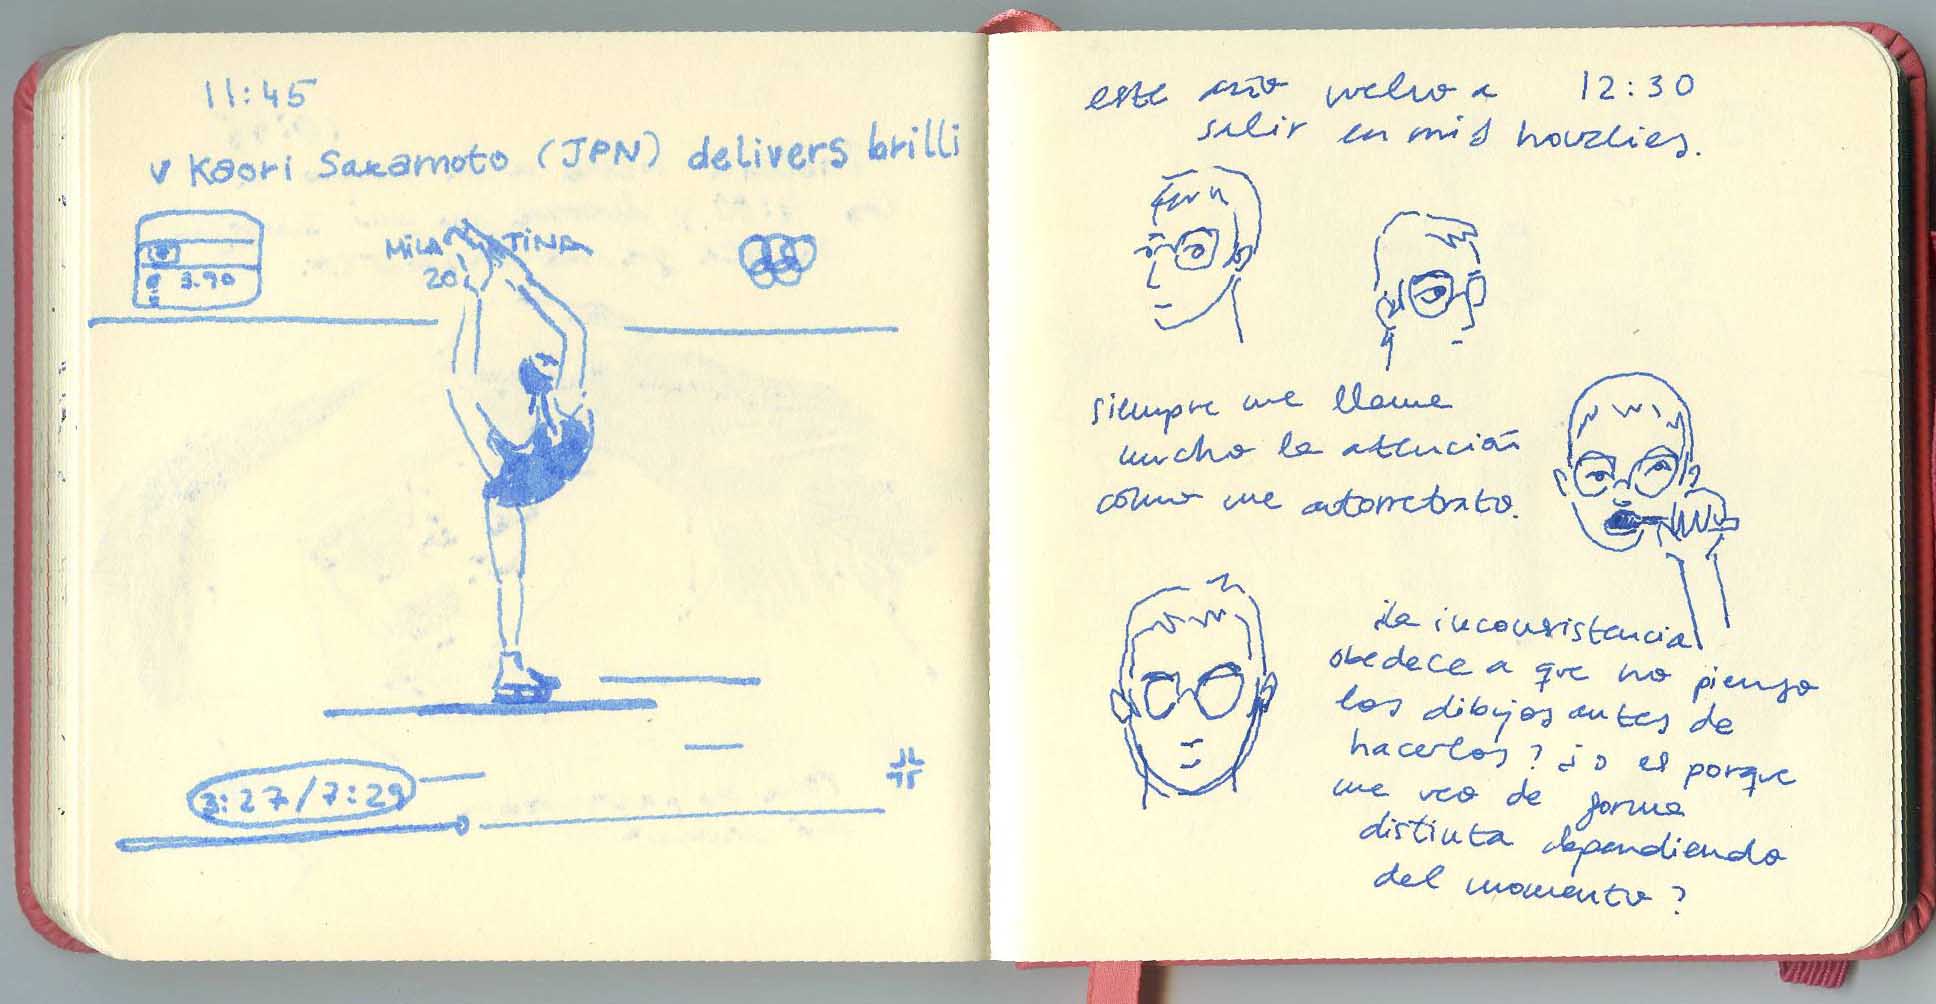 11:45
v Kaori Sakamoto (JPN) delivers brilli
MiLA TiNA
20
3.90
3:27/7:29
este año vuelvo a 12:30
salir en mis hourlies.
siempre me llama
mucho la atención
cómo me autorretrato.
¿la inconsistencia
obedece a que no pienso
los dibujos antes de
hacerlos? ¿o es porque
me veo de forma
distinta dependiendo
del momento?